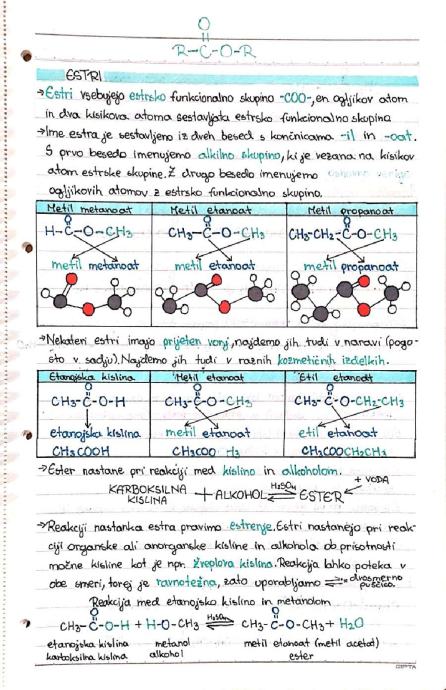 O
R-C-O-R
ESTRI
→Estri vsebujejo estrsko funkcionalno skupino -COO-, en ogljikov atom
in dva kisikova atoma sestavljata estrsko funkcionalno skupino
→Ime estra je sestavljeno iz dveh besed s končnicama -il in -oat.
S prvo besedo imenujemo alkilno skupino, ki je vezana na kisikov
atom estrske skupine. Z drugo besedo imenujemo
ogljikovih atomov z estrsko funkcionalno skupino.
Metil metanoat Metil etanoat Metil propanoat
O O O
H-C-O-CH3 CH3-C-O-CH3 CH3-CH2-C-O-CH3
metil metanoat metil etanoat metil propanoat
→Nekateri estri imajo prijeten vonj, najdemo jih tudi v naravi (pogo-
sto v sadju). Najdemo jih tudi v raznih kozmetičnih izdelkih.
Etanojska kislina Metil etanoat Etil etanoat
O O O
CH3-C-O-H CH3-C-O-CH3 CH3-C-O-CH2-CH3
etanojska kislina metil etanoat etil etanoat
CH3COOH CH3COO H3 CH3COOCH2CH3
→Ester nastane pri reakciji med kislino in alkoholom.
+ VODA
KARBOKSILNA KISLINA + ALKOHOL ⇌ H2SO4 ESTER
→Reakciji nastanka estra pravimo estrenje. Estri nastanejo pri reak-
ciji organske ali anorganske kisline in alkohola ob prisotnosti
močne kisline kot je npr. žveplova kislina. Reakcija lahko poteka v
obe smeri, torej je ravnotežna, zato uporabljamo ⇌ dvosmerno
puščico.
Reakcija med etanojsko kislino in metanolom
O O
CH3-C-O-H + H-O-CH3 ⇌ H2SO4 CH3-C-O-CH3 + H2O
etanojska kislina metanol metil etanoat (metil acetat)
karboksilna kislina alkohol ester